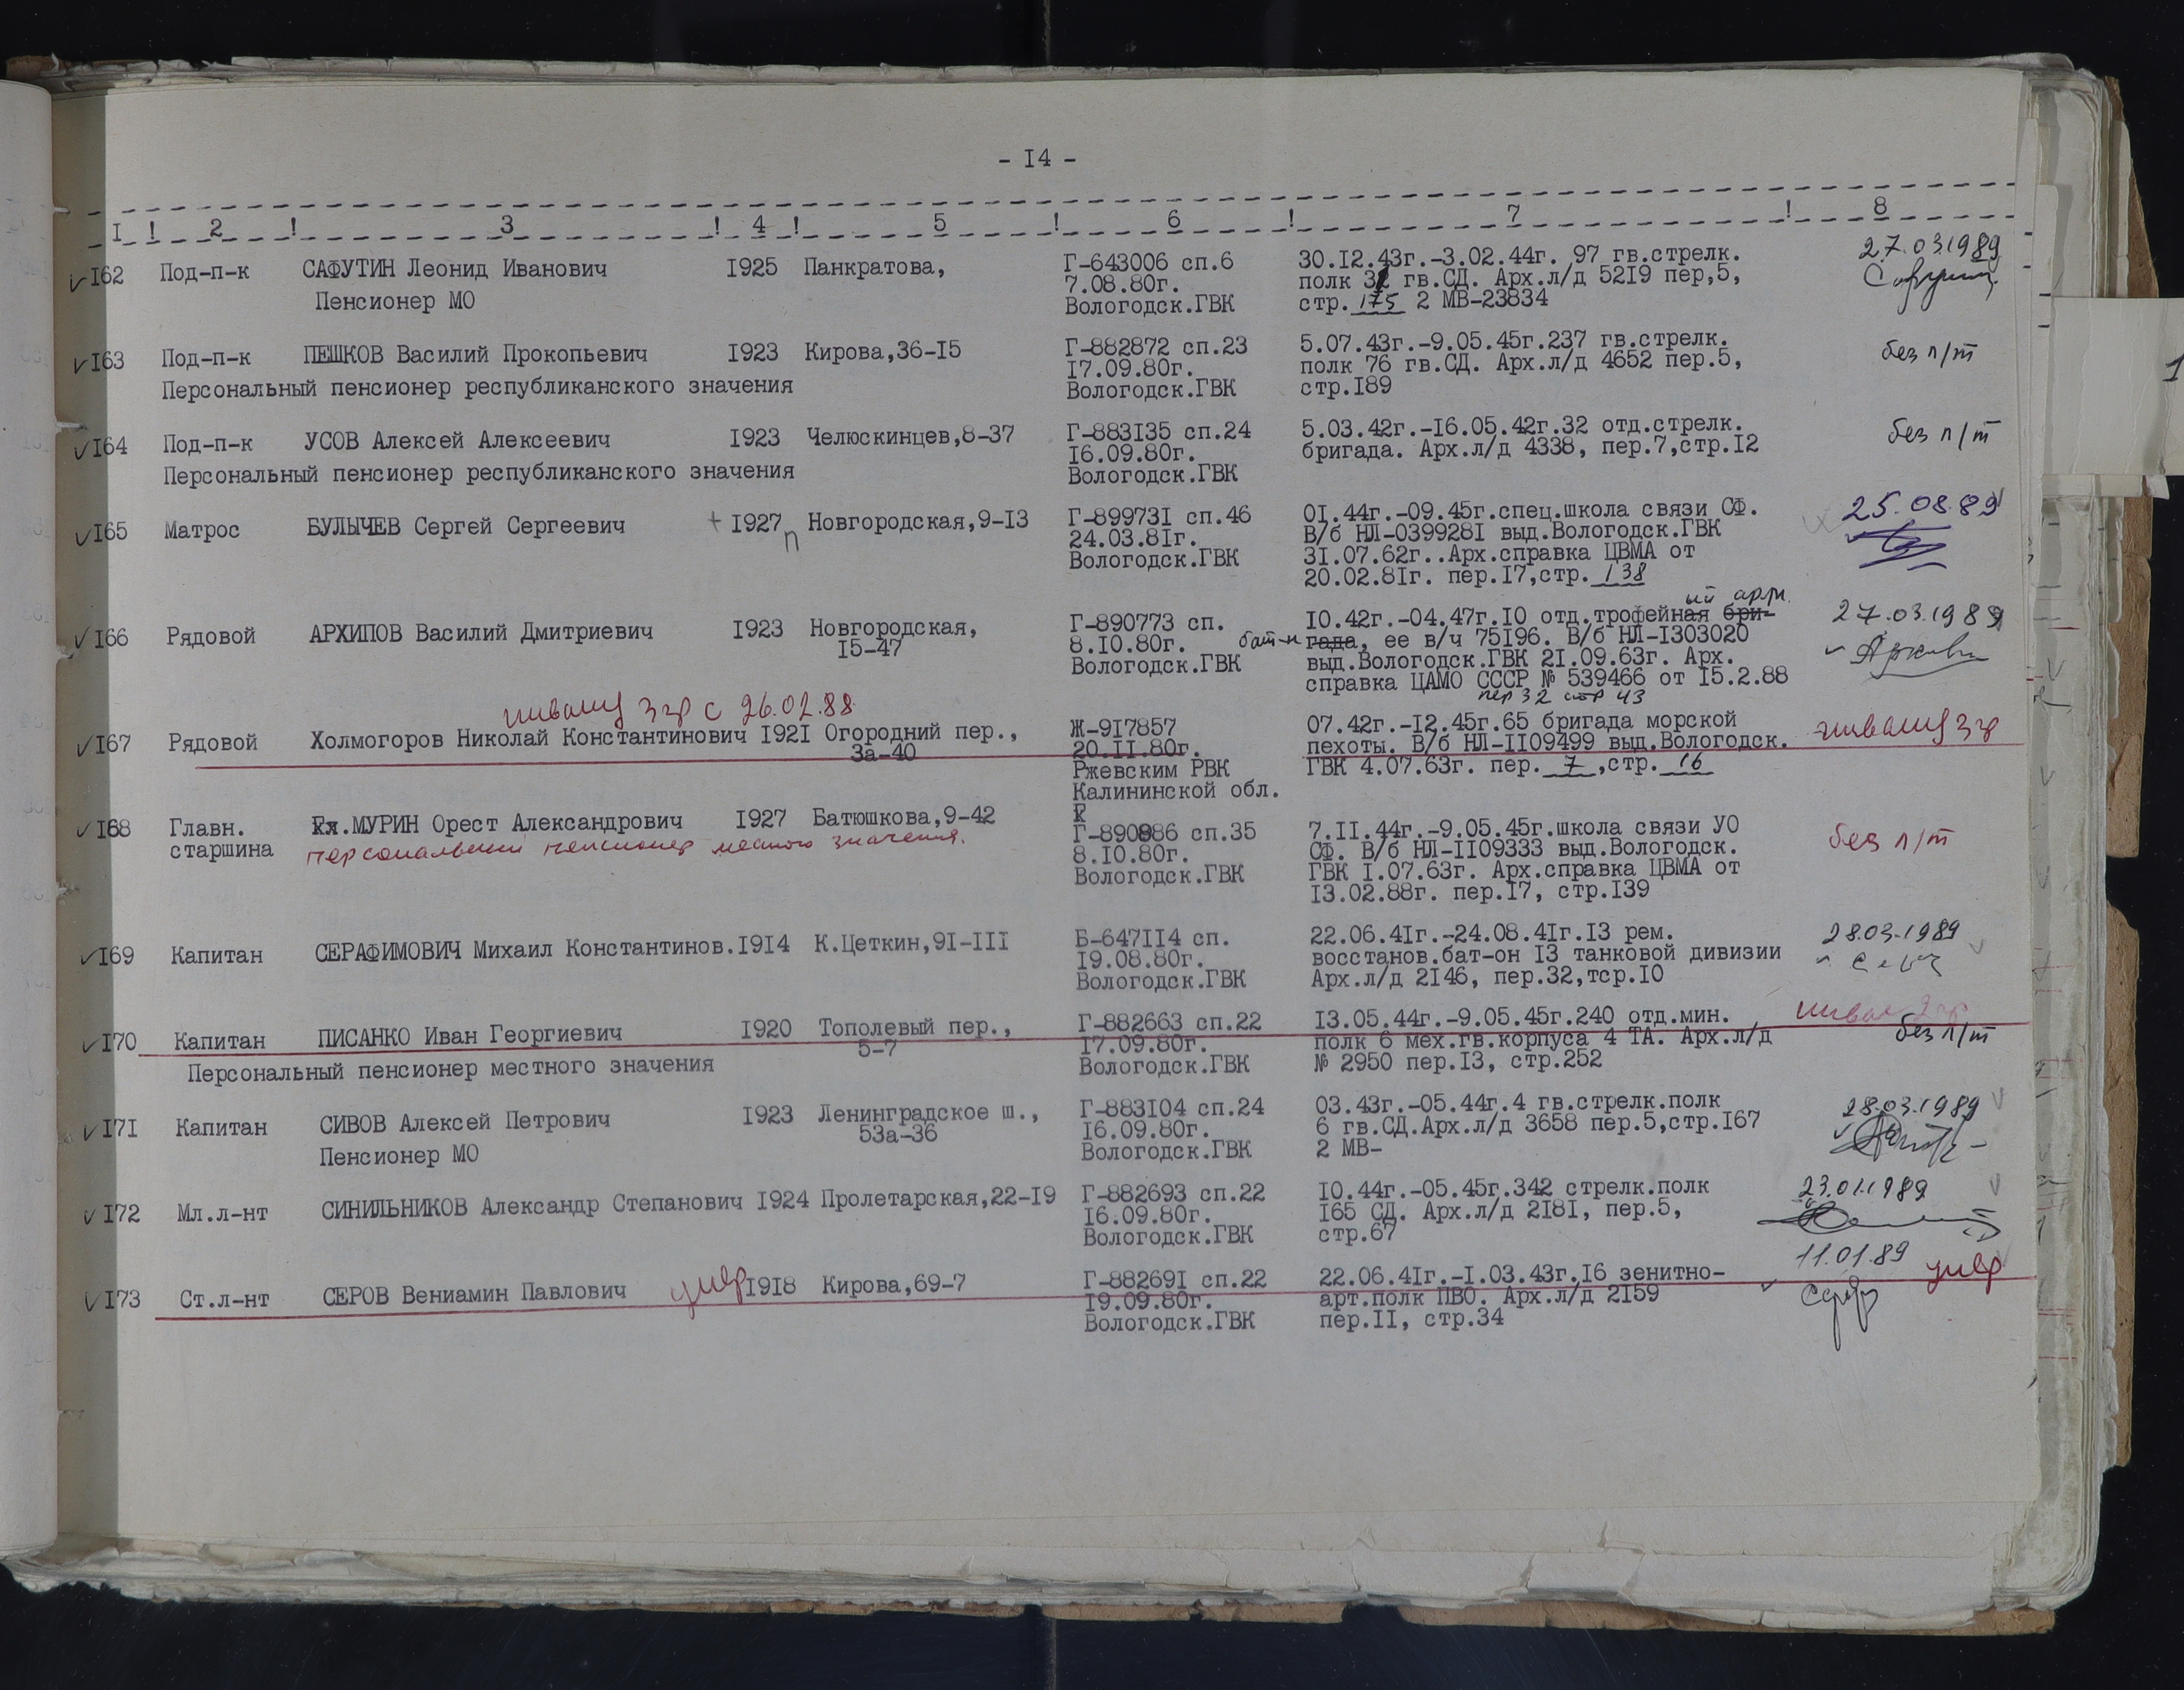 - I4 -
I ! 2 ! 3 ! 4 ! 5 ! 6 ! 7 ! 8
I62 Под-п-к САФУТИН Леонид Иванович I925 Панкратова, Г-643006 сп.6 30.I2.43г.-3.02.44г. 97 гв.стрелк. 27.03.1989
7.08.80г. полк 31 гв.СД. Арх.л/д 52I9 пер,5,
Пенсионер МО Вологодск.ГВК стр. 175 2 МВ-23834
I63 Под-п-к ПЕШКОВ Василий Прокопьевич I923 Кирова,36-I5 Г-882872 сп.23 5.07.43г.-9.05.45г.237 гв.стрелк. без п/т
I7.09.80г. полк 76 гв.СД. Арх.л/д 4652 пер.5,
Персональный пенсионер республиканского значения Вологодск.ГВК стр.I89
I64 Под-п-к УСОВ Алексей Алексеевич I923 Челюскинцев,8-37 Г-883I35 сп.24 5.03.42г.-I6.05.42г.32 отд.стрелк. без п/т
I6.09.80г. бригада. Арх.л/д 4338, пер.7,стр.I2
Персональный пенсионер республиканского значения Вологодск.ГВК
I65 Матрос БУЛЫЧЕВ Сергей Сергеевич + I927 п Новгородская,9-I3 Г-89973I сп.46 0I.44г.-09.45г.спец.школа связи СФ. 25.08.89
24.03.8Iг. В/б НЛ-039928I выд.Вологодск.ГВК
Вологодск.ГВК 3I.07.62г..Арх.справка ЦВМА от
20.02.8Iг. пер.I7,стр. 138
ый арм.
I66 Рядовой АРХИПОВ Василий Дмитриевич I923 Новгородская, Г-890773 сп. I0.42г.-04.47г.I0 отд.трофейная бри- 27.03.1989
I5-47 8.I0.80г. бат-н гада, ее в/ч 75I96. В/б НЛ-I303020
Вологодск.ГВК выд.Вологодск.ГВК 2I.09.63г. Арх.
справка ЦАМО СССР № 539466 от I5.2.88
пер 32 стр 43
инвалид 3 гр с 26.02.88
I67 Рядовой Холмогоров Николай Константинович I92I Огородний пер., Ж-9I7857 07.42г.-I2.45г.65 бригада морской инвалид 3 гр
3а-40 20.II.80г. пехоты. В/б НЛ-II09499 выд.Вологодск.
Ржевским РВК ГВК 4.07.63г. пер. 7 ,стр. 16
Калининской обл.
I68 Главн. МУРИН Орест Александрович I927 Батюшкова,9-42 Г-890886 сп.35 7.II.44г.-9.05.45г.школа связи УО без п/т
старшина персональный пенсионер местного значения. 8.I0.80г. СФ. В/б НЛ-II09333 выд.Вологодск.
Вологодск.ГВК ГВК I.07.63г. Арх.справка ЦВМА от
I3.02.88г. пер.I7, стр.I39
I69 Капитан СЕРАФИМОВИЧ Михаил Константинов.I9I4 К.Цеткин,9I-III Б-647II4 сп. 22.06.4Iг.-24.08.4Iг.I3 рем. 28.03.1989
I9.08.80г. восстанов.бат-он I3 танковой дивизии
Вологодск.ГВК Арх.л/д 2I46, пер.32,тср.I0
I70 Капитан ПИСАНКО Иван Георгиевич I920 Тополевый пер., Г-882663 сп.22 I3.05.44г.-9.05.45г.240 отд.мин. инвал 2 гр
5-7 I7.09.80г. полк 6 мех.гв.корпуса 4 ТА. Арх.л/д без п/т
Персональный пенсионер местного значения Вологодск.ГВК № 2950 пер.I3, стр.252
I7I Капитан СИВОВ Алексей Петрович I923 Ленинградское ш., Г-883I04 сп.24 03.43г.-05.44г.4 гв.стрелк.полк 28.03.1989
53а-36 I6.09.80г. 6 гв.СД.Арх.л/д 3658 пер.5,стр.I67
Пенсионер МО Вологодск.ГВК 2 МВ-
I72 Мл.л-нт СИНИЛЬНИКОВ Александр Степанович I924 Пролетарская,22-I9 Г-882693 сп.22 I0.44г.-05.45г.342 стрелк.полк 23.01.1989
I6.09.80г. I65 СД. Арх.л/д 2I8I, пер.5,
Вологодск.ГВК стр.67
I73 Ст.л-нт СЕРОВ Вениамин Павлович умер I9I8 Кирова,69-7 Г-88269I сп.22 22.06.4Iг.-I.03.43г.I6 зенитно- 11.01.89 умер
I9.09.80г. арт.полк ПВО. Арх.л/д 2I59
Вологодск.ГВК пер.II, стр.34